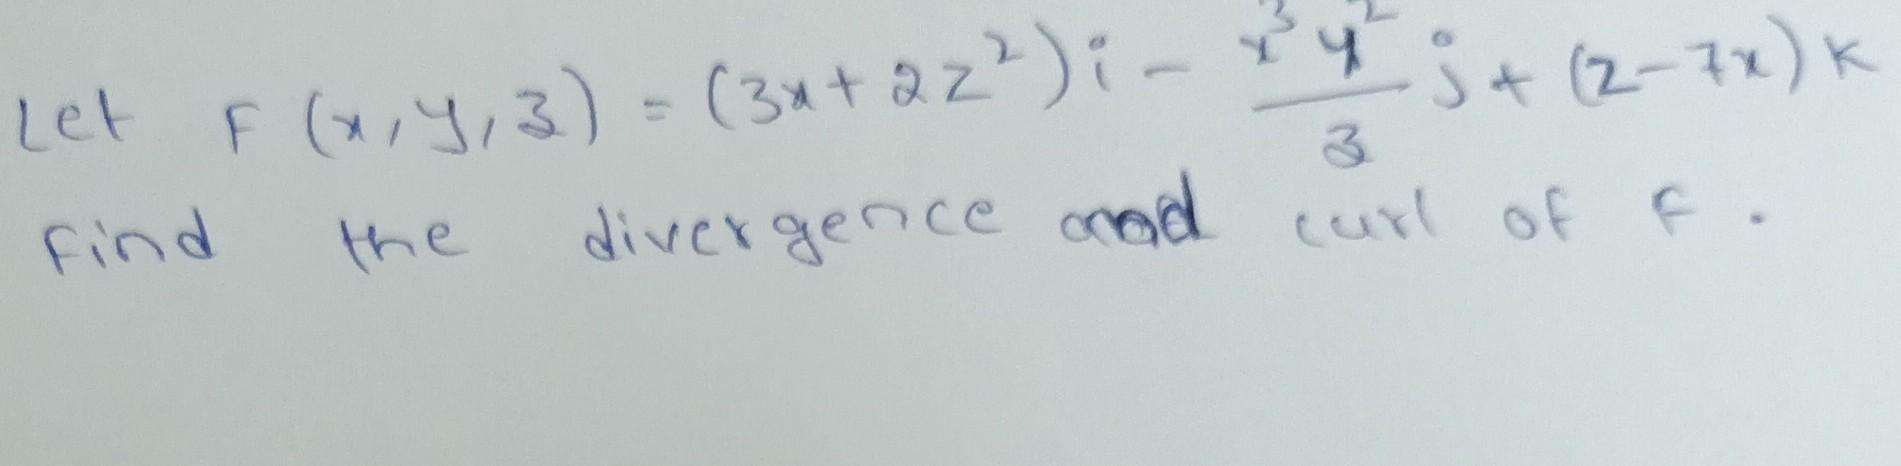 Let F(x,y,3) = (3x+2z²)i - x³y²/3 j + (z-7x)k
Find the divergence and curl of F.